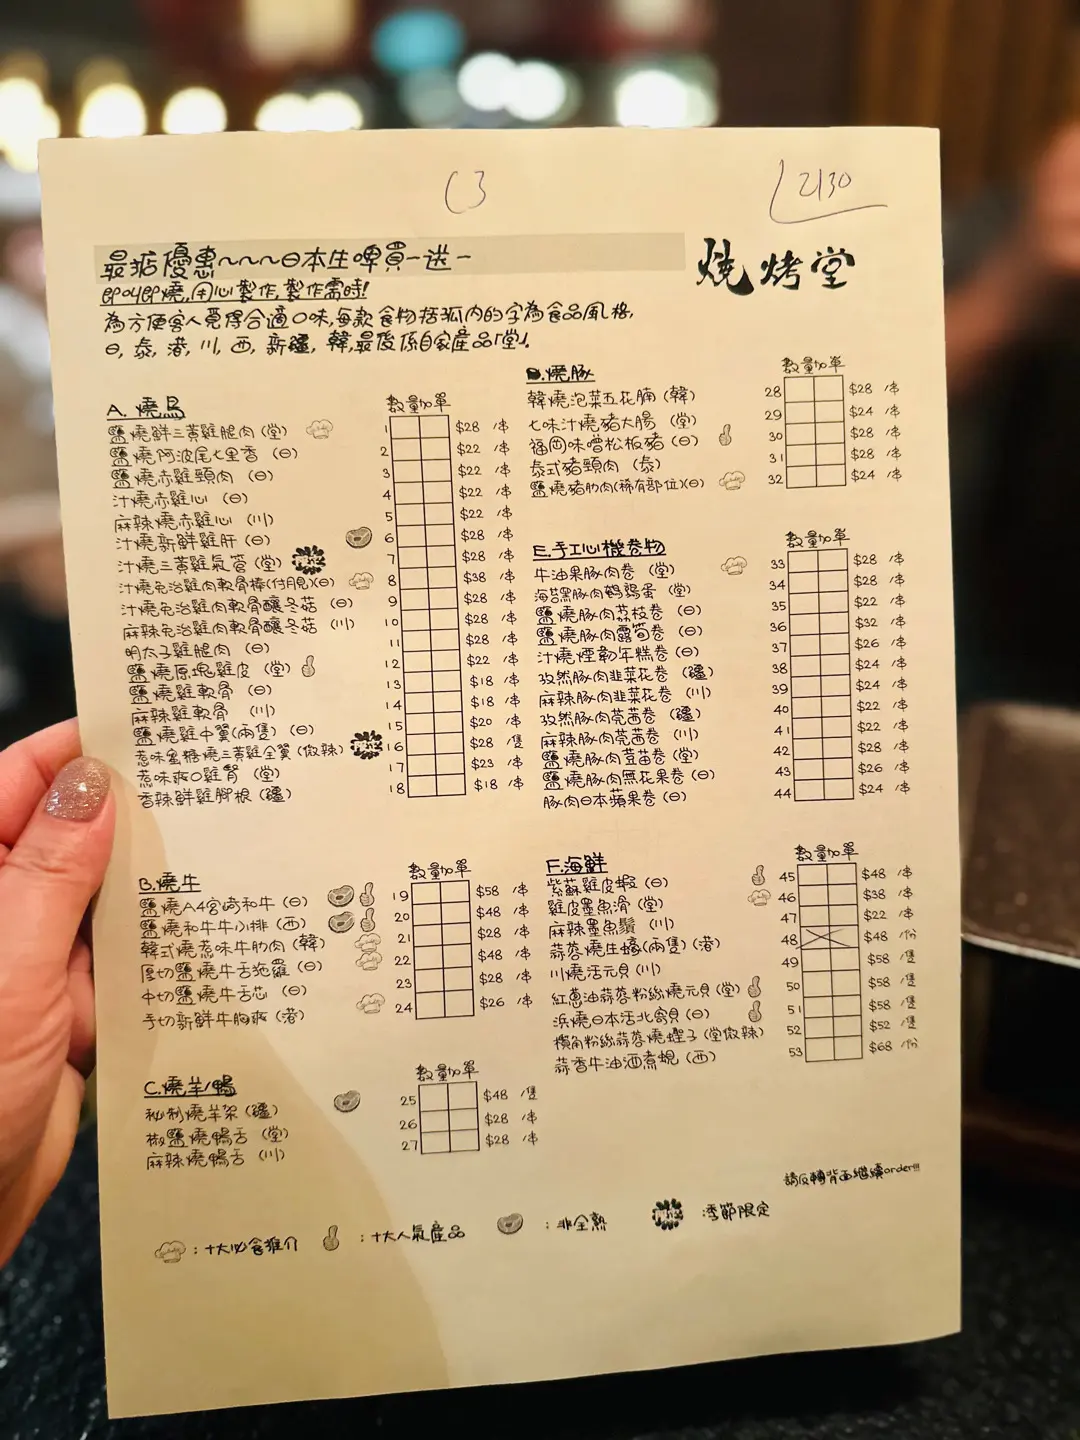 C3
2130
最掂優惠~~~日本生啤買一送一
燒烤堂
即叫即燒,用心製作,製作需時!
為方便客人覓得合適口味,每款食物括弧內的字為食品風格,
日, 泰, 港, 川, 西, 新疆, 韓,最後係自家産品「堂」.
A. 燒鳥
數量 加單
鹽燒鮮三黃雞腿肉 (堂) 1 $28 /串
鹽燒阿波尾七里香 (日) 2 $22 /串
鹽燒赤雞頸肉 (日) 3 $22 /串
汁燒赤雞心 (日) 4 $22 /串
麻辣燒赤雞心 (川) 5 $22 /串
汁燒新鮮雞肝 (日) 6 $28 /串
汁燒三黃雞氣管 (堂) 7 $28 /串
汁燒免治雞肉軟骨棒(付月見)(日) 8 $38 /串
汁燒免治雞肉軟骨釀冬菇 (日) 9 $28 /串
麻辣免治雞肉軟骨釀冬菇 (川) 10 $28 /串
明太子雞腿肉 (日) 11 $28 /串
鹽燒原塊雞皮 (堂) 12 $22 /串
鹽燒雞軟骨 (日) 13 $18 /串
麻辣雞軟骨 (川) 14 $18 /串
鹽燒雞中翼(兩隻) (日) 15 $20 /串
惹味蜜糖燒三黃雞全翼 (微辣) 16 $28 /隻
惹味爽口雞腎 (堂) 17 $23 /串
香辣鮮雞腳根 (疆) 18 $18 /串
B.燒牛
數量 加單
鹽燒A4宮崎和牛 (日) 19 $58 /串
鹽燒和牛牛小排 (西) 20 $48 /串
韓式燒惹味牛肋肉 (韓) 21 $28 /串
厚切鹽燒牛舌拖羅 (日) 22 $48 /串
中切鹽燒牛舌芯 (日) 23 $28 /串
手切新鮮牛胸爽 (港) 24 $26 /串
C.燒羊/鴨
數量 加單
秘制燒羊架 (疆) 25 $48 /隻
椒鹽燒鴨舌 (堂) 26 $28 /串
麻辣燒鴨舌 (川) 27 $28 /串
D.燒豚
數量 加單
韓燒泡菜五花腩 (韓) 28 $28 /串
七味汁燒豬大腸 (堂) 29 $24 /串
福岡味噌松板豬 (日) 30 $28 /串
泰式豬頸肉 (泰) 31 $28 /串
鹽燒豬肋肉(稀有部位)(日) 32 $24 /串
E.手工心機卷物
數量 加單
牛油果豚肉卷 (堂) 33 $28 /串
海苔黑豚肉鵪鶉蛋 (堂) 34 $28 /串
鹽燒豚肉荔枝卷 (日) 35 $22 /串
鹽燒豚肉露筍卷 (日) 36 $32 /串
汁燒煙韌年糕卷 (日) 37 $26 /串
孜然豚肉韭菜花卷 (疆) 38 $24 /串
麻辣豚肉韭菜花卷 (川) 39 $24 /串
孜然豚肉芫茜卷 (疆) 40 $22 /串
麻辣豚肉芫茜卷 (川) 41 $22 /串
鹽燒豚肉荳苗卷 (日) 42 $28 /串
鹽燒豚肉無花果卷 (日) 43 $26 /串
豚肉日本蘋果卷 (日) 44 $24 /串
F.海鮮
數量 加單
紫蘇雞皮蝦 (日) 45 $48 /串
雞皮墨魚滑 (堂) 46 $38 /串
麻辣墨魚鬚 (川) 47 $22 /串
蒜蓉燒生蠔(兩隻) (港) 48 $48 /份
川燒活元貝 (川) 49 $58 /隻
紅蔥油蒜蓉粉絲燒元貝 (堂) 50 $58 /隻
浜燒日本活北寄貝 (日) 51 $58 /隻
欖角粉絲蒜蓉燒蟶子 (堂微辣) 52 $52 /隻
蒜香牛油酒煮蜆 (西) 53 $68 /份
請反轉背面繼續order!!!
:十大必食推介
:十大人氣産品
:非全熟
:季節限定